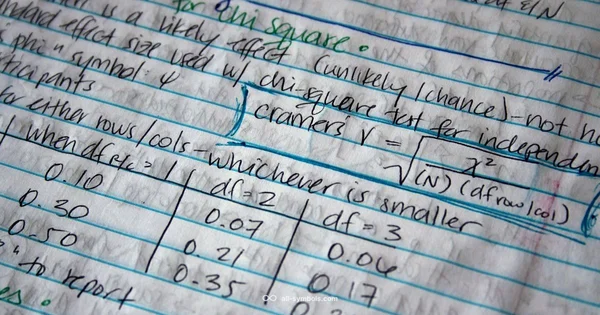 for chi square.
is a likely effect (unlikely / chance) - not
effect size used w/ chi-square test for independen
"phi" symbol: φ
cramers' V = √ χ² / (N) (df row/col)
ticipants
for either rows/cols - whichever is smaller
when df r/c = 1 df = 2 df = 3
0.10 0.07 0.06
0.30 0.21 0.17
0.50 0.35
" to report
all-symbols.com